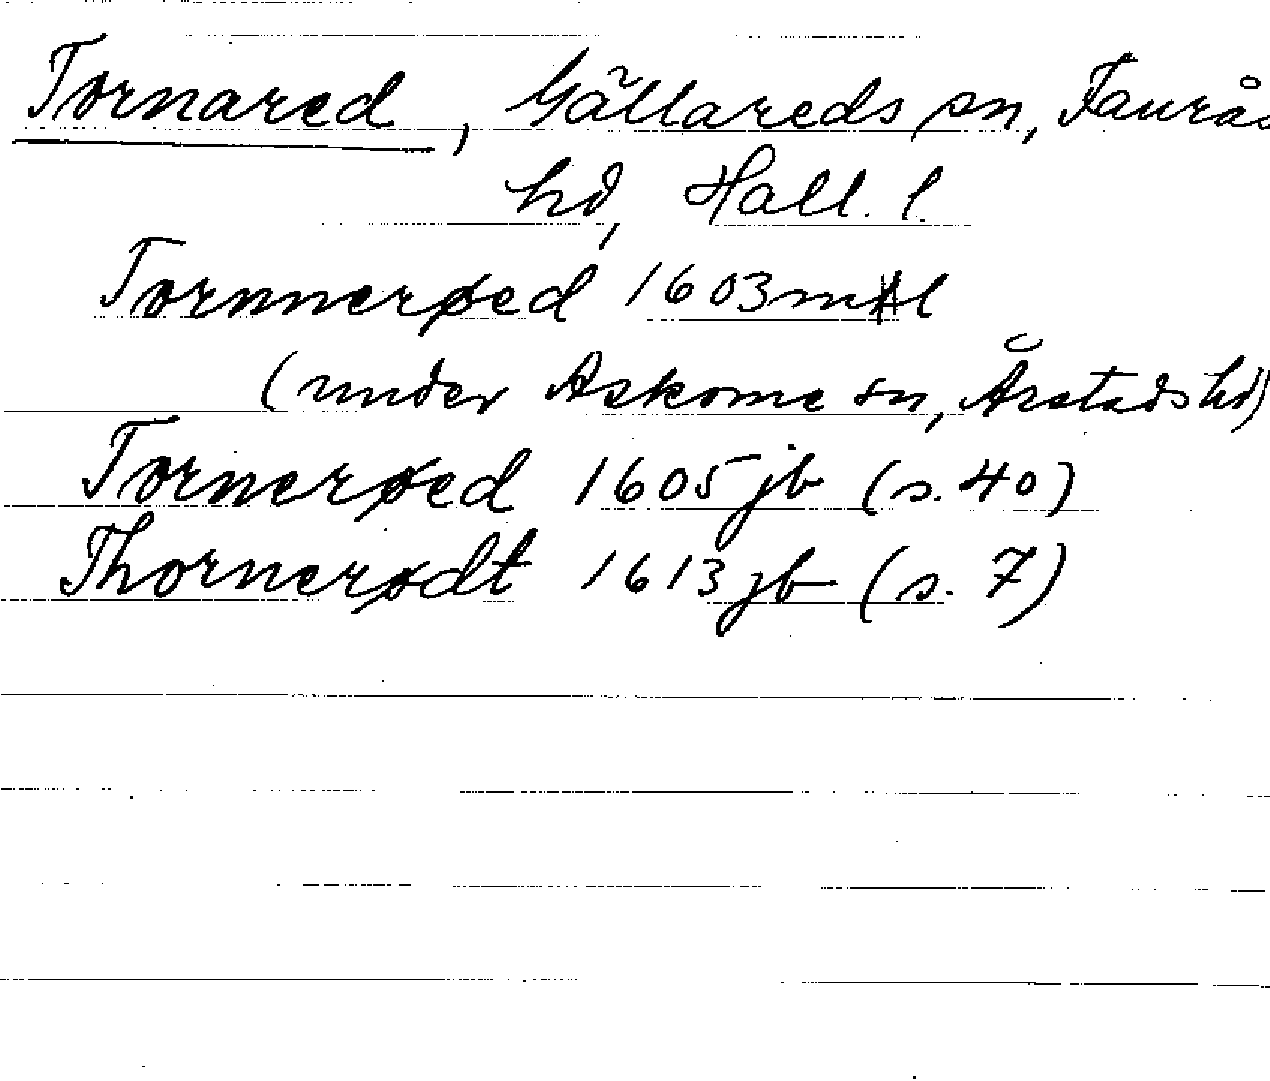 Tornared, Gällareds sn, Faurås
hd, Hall. l.
Tornnerøed 1603 mtl
(under Askome sn, Årstads hd)
Tornerøed 1605 jb (s. 40)
Thornerødt 1613 jb (s. 7)